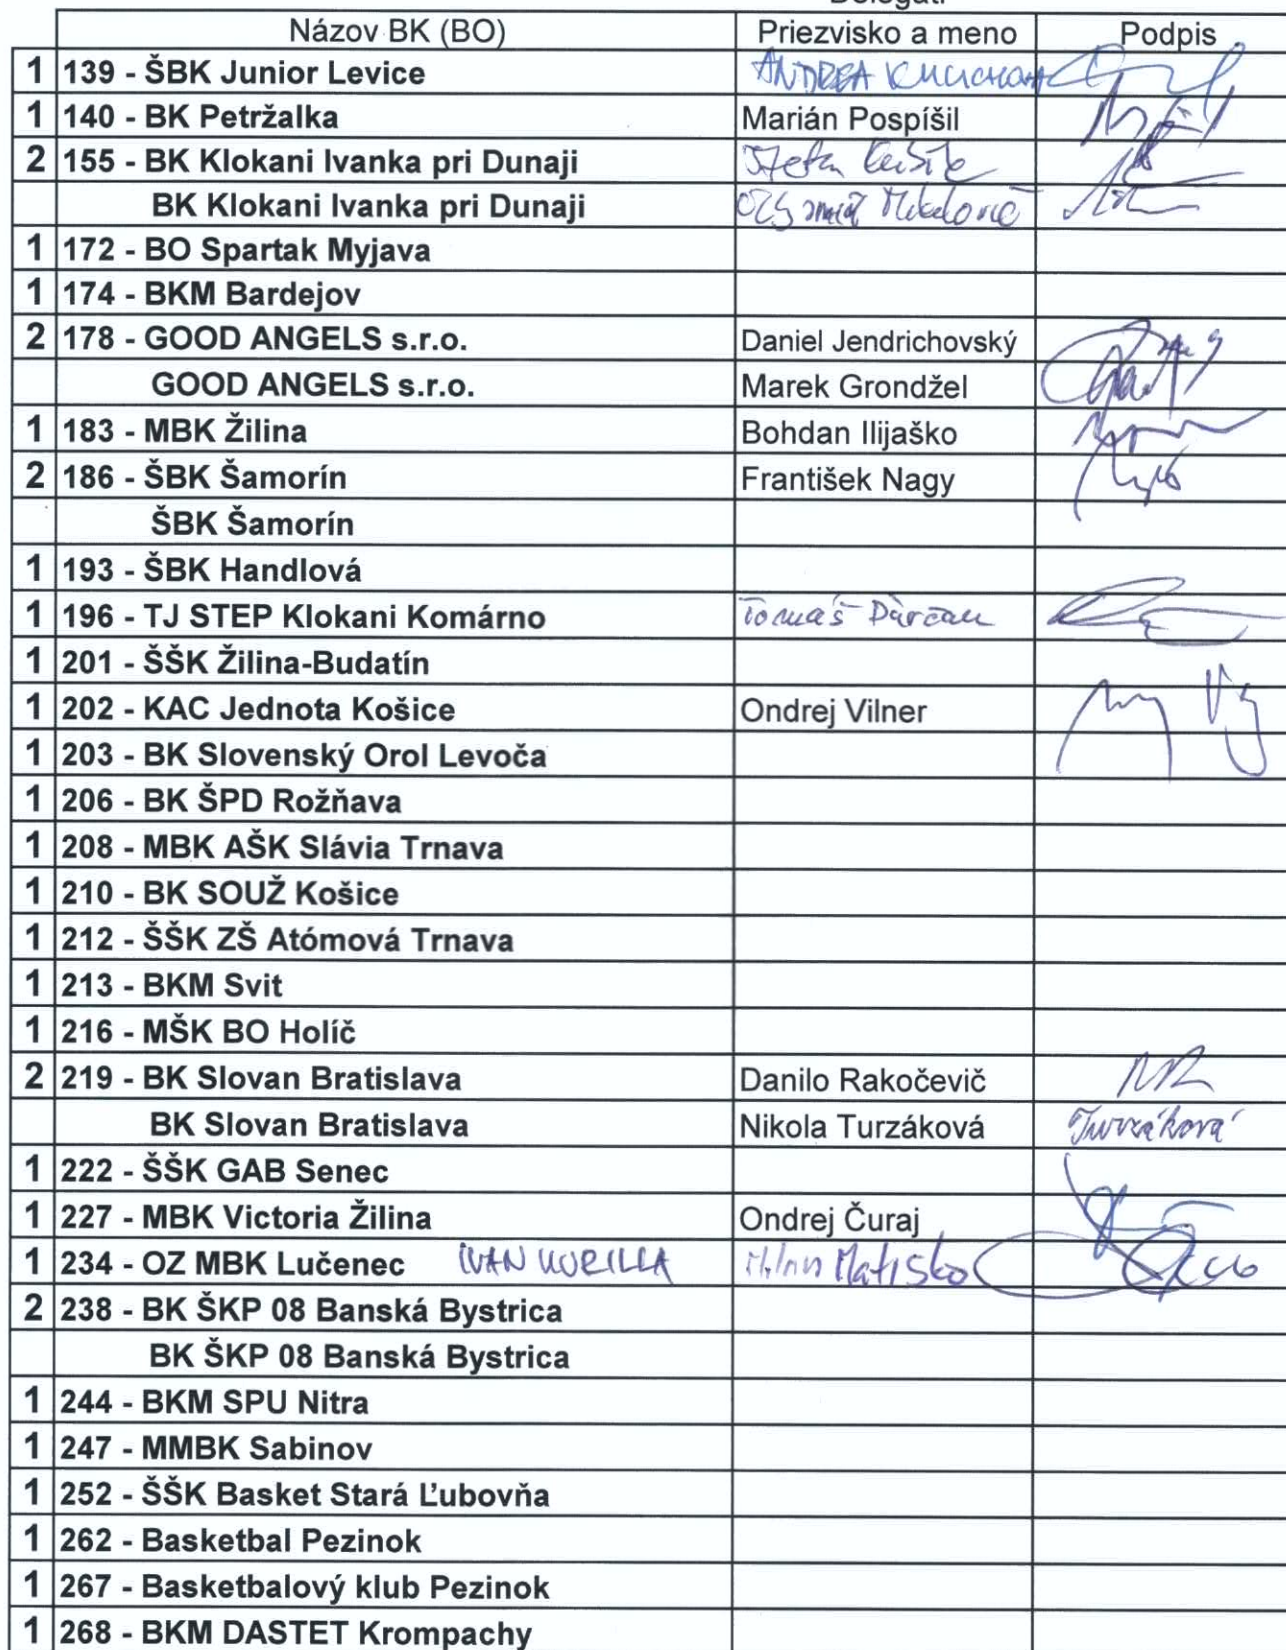 Delegáti
Názov BK (BO) Priezvisko a meno Podpis
1 139 - ŠBK Junior Levice ANDREA
1 140 - BK Petržalka Marián Pospíšil
2 155 - BK Klokani Ivanka pri Dunaji
BK Klokani Ivanka pri Dunaji
1 172 - BO Spartak Myjava
1 174 - BKM Bardejov
2 178 - GOOD ANGELS s.r.o. Daniel Jendrichovský
GOOD ANGELS s.r.o. Marek Grondžel
1 183 - MBK Žilina Bohdan Ilijaško
2 186 - ŠBK Šamorín František Nagy
ŠBK Šamorín
1 193 - ŠBK Handlová
1 196 - TJ STEP Klokani Komárno Tomáš
1 201 - ŠŠK Žilina-Budatín
1 202 - KAC Jednota Košice Ondrej Vilner
1 203 - BK Slovenský Orol Levoča
1 206 - BK ŠPD Rožňava
1 208 - MBK AŠK Slávia Trnava
1 210 - BK SOUŽ Košice
1 212 - ŠŠK ZŠ Atómová Trnava
1 213 - BKM Svit
1 216 - MŠK BO Holíč
2 219 - BK Slovan Bratislava Danilo Rakočevič
BK Slovan Bratislava Nikola Turzáková Turzáková
1 222 - ŠŠK GAB Senec
1 227 - MBK Victoria Žilina Ondrej Čuraj
1 234 - OZ MBK Lučenec IVAN KURILLA Matisko
2 238 - BK ŠKP 08 Banská Bystrica
BK ŠKP 08 Banská Bystrica
1 244 - BKM SPU Nitra
1 247 - MMBK Sabinov
1 252 - ŠŠK Basket Stará Ľubovňa
1 262 - Basketbal Pezinok
1 267 - Basketbalový klub Pezinok
1 268 - BKM DASTET Krompachy